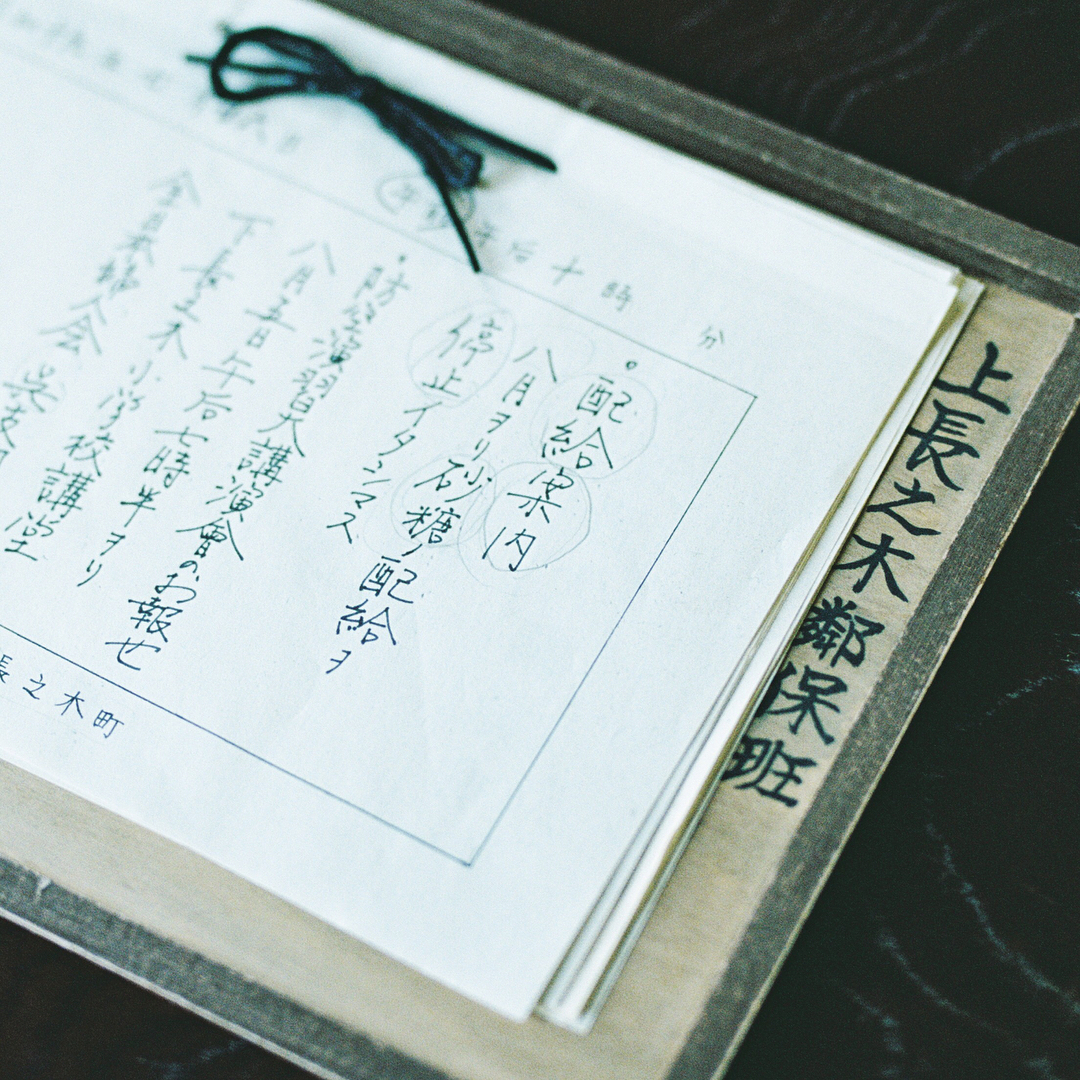 上長之木鄰保班
午前午后十時 分
・配給案内
八月ヨリ砂糖ノ配給ヲ
停止イタシマス
・防空演習大講演會のお報せ
八月五日午后七時半ヨリ
下長之木小学校講堂
全日本婦人会呉支
長之木町